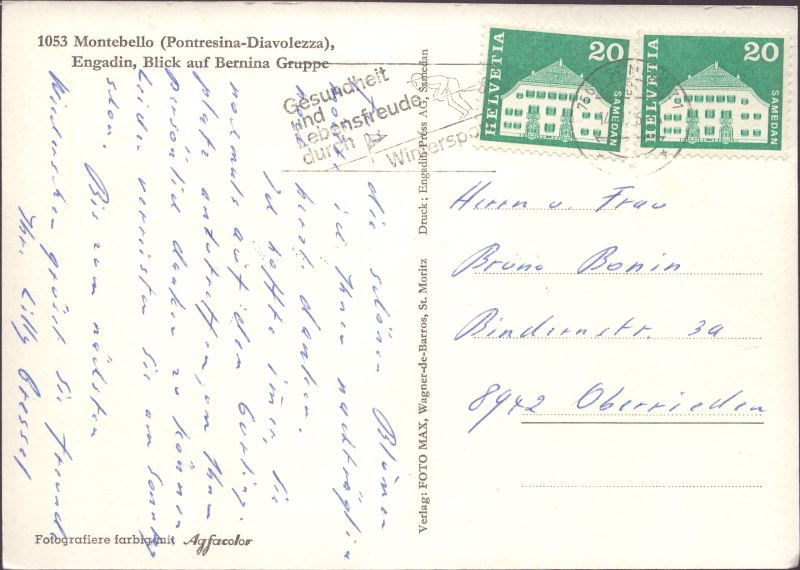 1053 Montebello (Pontresina-Diavolezza),
Engadin, Blick auf Bernina Gruppe
Gesundheit
und
Lebensfreude
durch
Winterspo
HELVETIA 20 SAMEDAN
HELVETIA 20 SAMEDAN
die schönen Blumen
ich Ihnen nachträglich
herzl. danken.
Ich hoffte immer, Sie
nochmals auf dem Curling-
platz anzutreffen, um Ihnen
persönlich danken zu können,
leider verreisten Sie am Samstag
schon.
Bis zum nächsten
grüsst Sie freundl.
Ihr. Lilly
Verlag: FOTO MAX, Wagner-de-Barros, St. Moritz Druck: Engadin-Press AG, Samedan
Herrn u. Frau
Bruno Bonin
Bindernstr. 3a
8942 Oberrieden
Fotografiere farbig mit Agfacolor